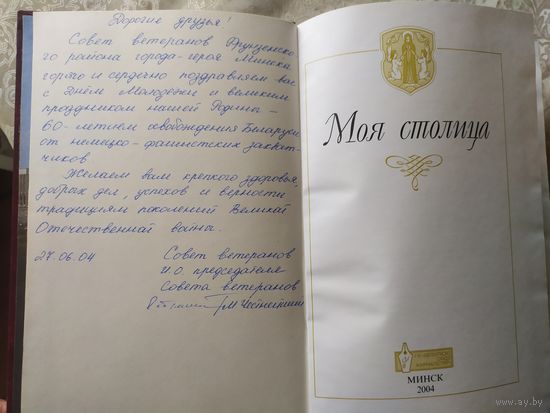 Дорогие друзья!
Совет ветеранов Фрунзенско-
го района города-героя Минска
горячо и сердечно поздравляет вас
с Днём Молодёжи и великим
праздником нашей Родины –
60-летием освобождения Беларуси
от немецко-фашистских захват-
чиков
Желаем вам крепкого здоровья,
добрых дел, успехов и верности
традициям поколений Великой
Отечественной войны.
27.06.04 Совет ветеранов
И.О. председателя
Совета ветеранов
Моя столица
МИНСК
2004
www.ay.by